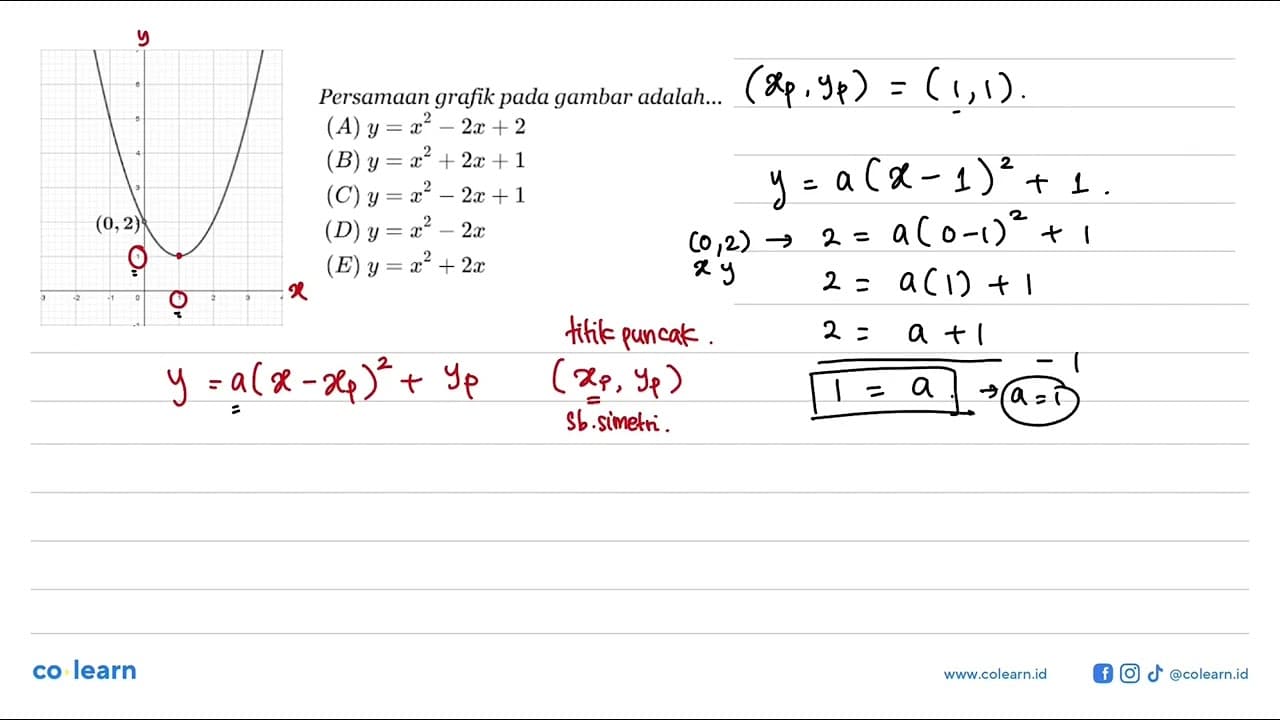 y
6
5
4
3
(0, 2)
1
3 -2 -1 0 1 2 3 4
-1
x
Persamaan grafik pada gambar adalah...
(A) y = x² − 2x + 2
(B) y = x² + 2x + 1
(C) y = x² − 2x + 1
(D) y = x² − 2x
(E) y = x² + 2x
(xp, yp) = (1, 1).
y = a(x − 1)² + 1.
(0,2) → 2 = a(0−1)² + 1
x y
2 = a(1) + 1
2 = a + 1
− 1
1 = a. → a = 1
titik puncak.
y = a(x − xp)² + yp
(xp, yp)
sb. simetri.
co learn
www.colearn.id
@colearn.id